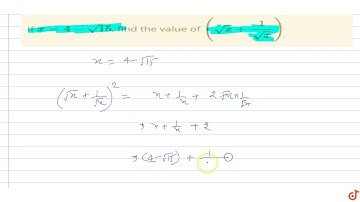 If x = 4 - √15, find the value of (√x + 1/√x)
x = 4-√15
(√x + 1/√x)² = x + 1/x + 2√x × 1/√x
⇒ x + 1/x + 2
⇒ (4-√15) + 1/